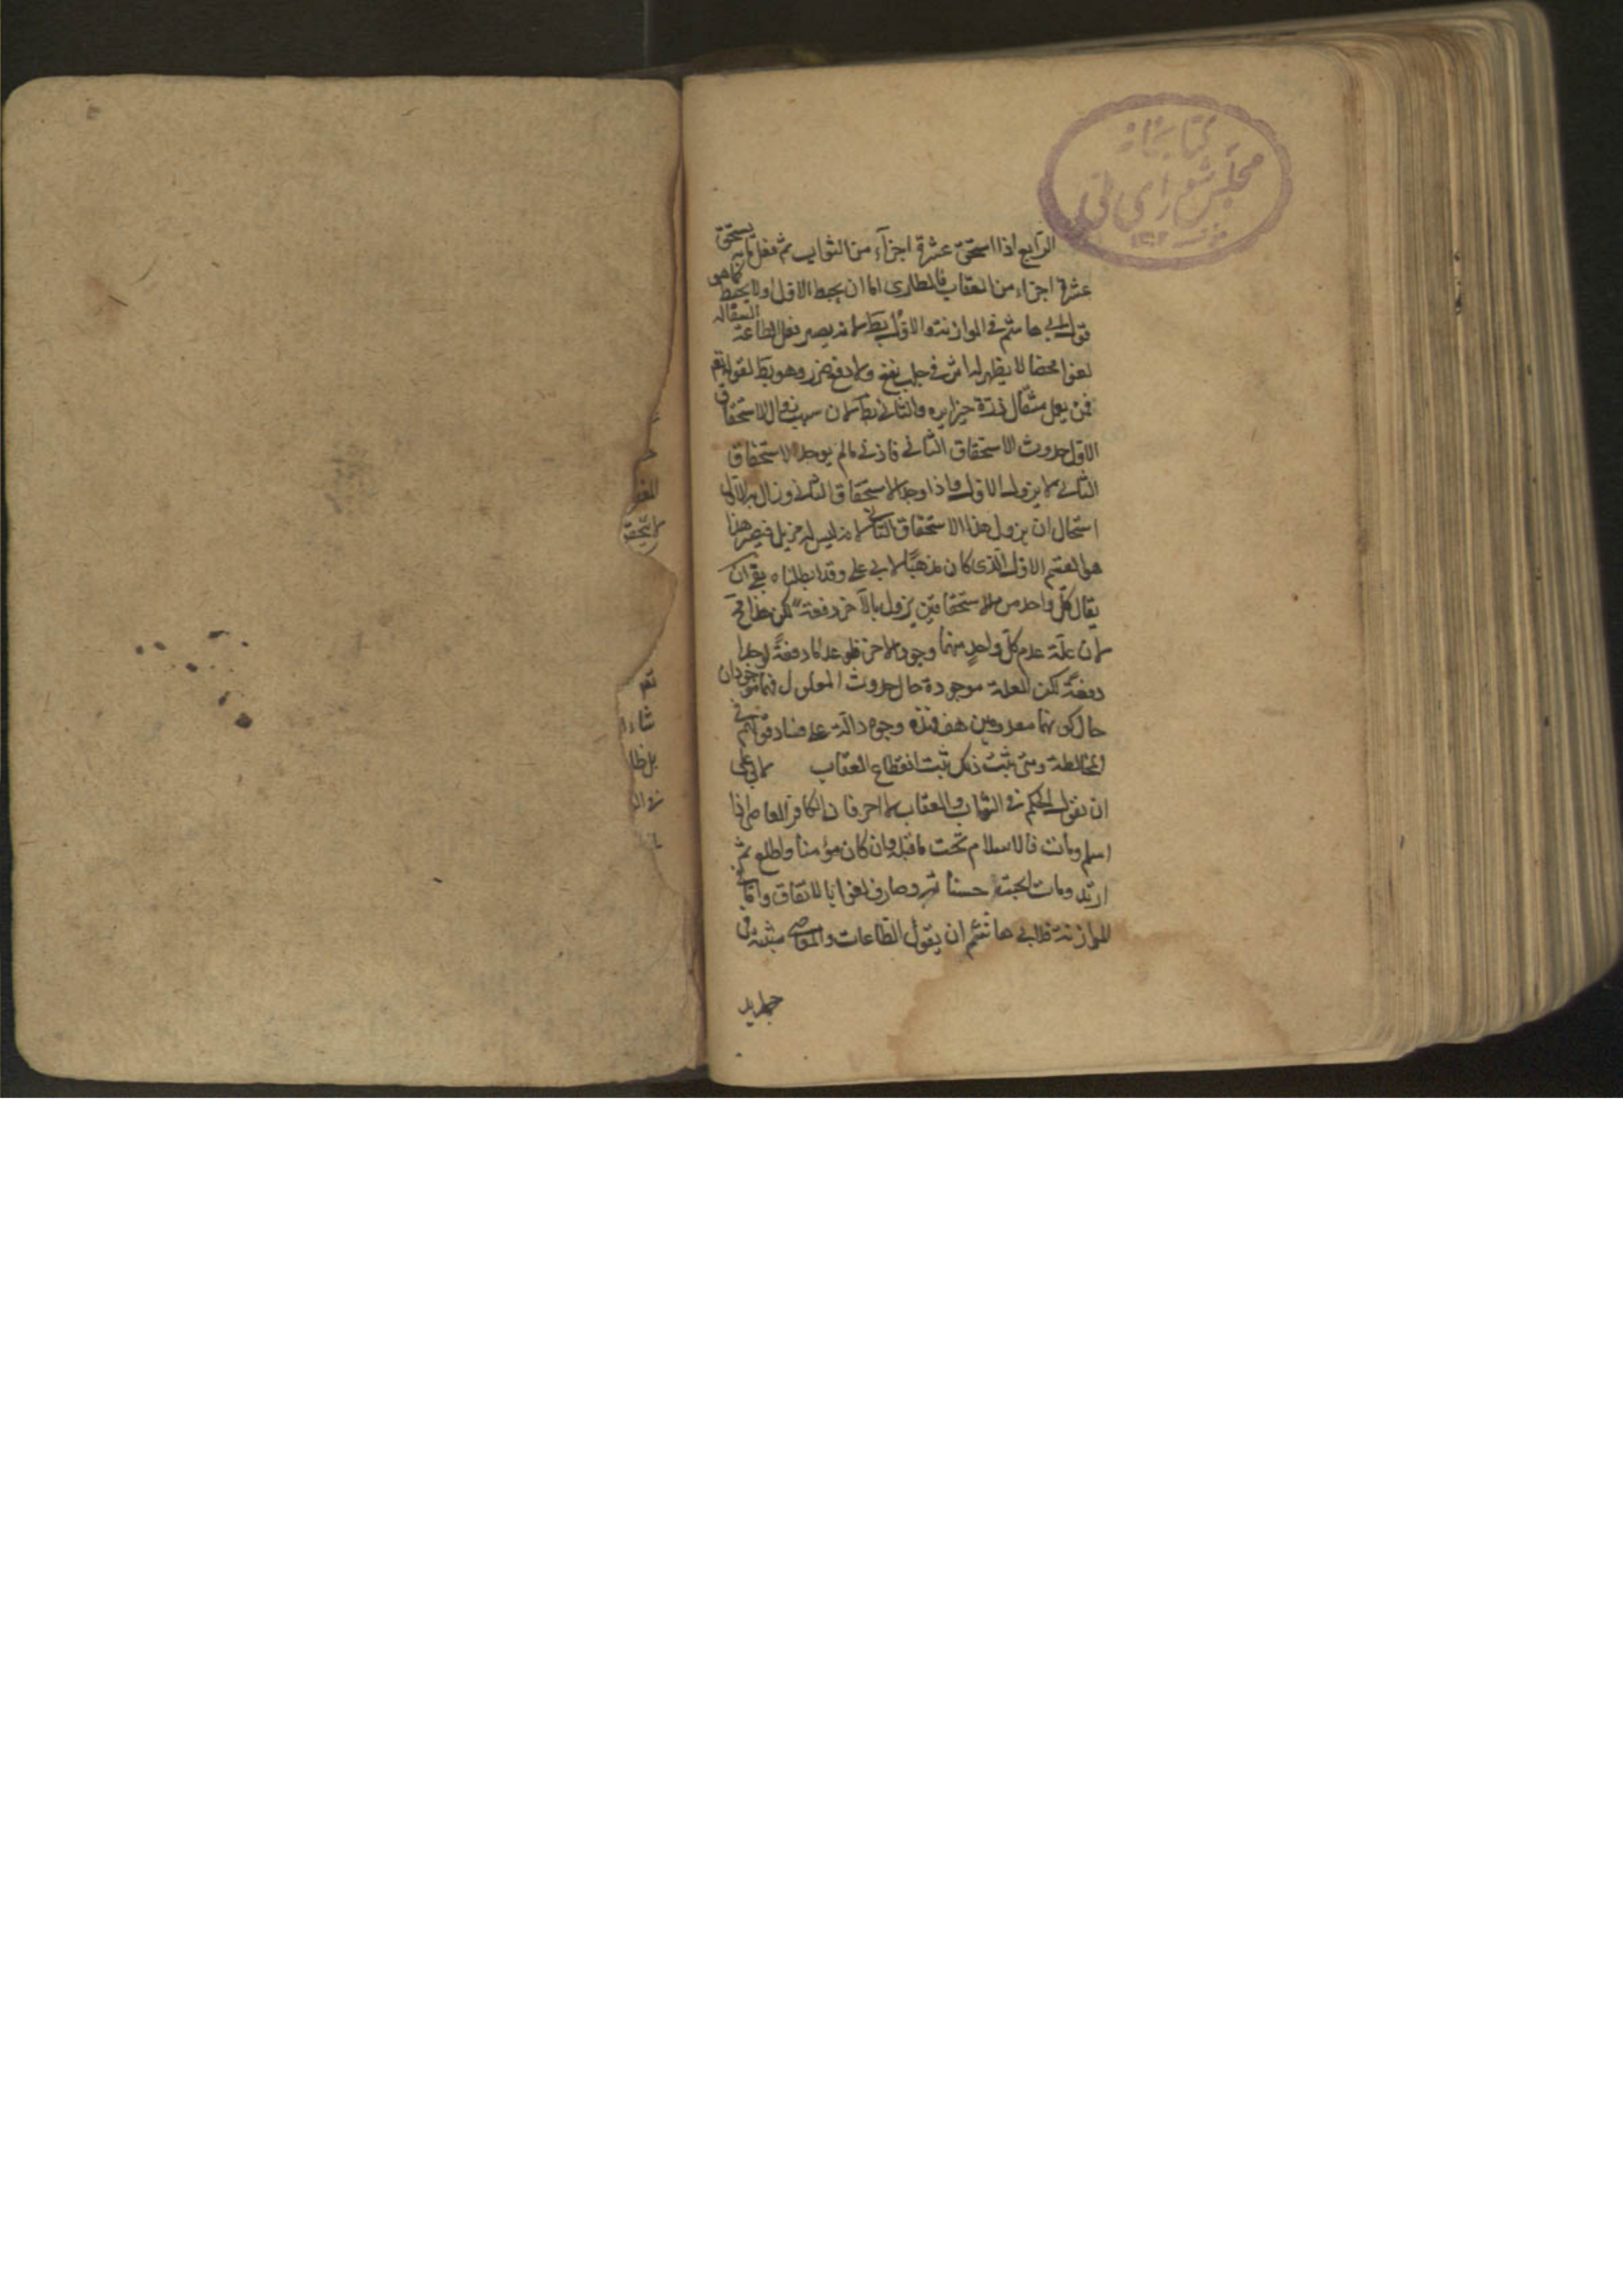 كتابخانه
مجلس شورای ملی
الرابع اذا استحق عشرة اجزآء من الثواب ثم فعل ما به يستحق
عشرة اجزاء من العقاب فالطاری اما ان يحبط الاول اولا يحبط كما هو
قول ابی هاشم فی الموازنة والاول بط لانه يصير فعل الطاعة السالفة
لغوا محضا لا يظهر له اثر فی جلب نفع ولا دفع ضرر وهو بط لقوله تعم
فمن يعمل مثقال ذرة خيرا يره والثانی بط لان سبب زوال الاستحقاق
الاول حدوث الاستحقاق الثانی فاذن ما لم يوجد الاستحقاق
الثانی لا يزول الاول واذا وجد الاستحقاق الثانی وزال به الاول
استحال ان يزول هذا الاستحقاق الثانی لانه ليس له مزيل فيصير هذا
هو القسم الاول الذی كان مذهبًا لابی علی وقد ابطلناه بقی ان
يقال كل واحد من الاستحقاقين يزول بالآخر دفعة لكن هذا مح
لان علة عدم كل واحدٍ منهما وجود الاخر فلو عدما دفعةً لوجدا
دفعةً لكن العلة موجودة حال حدوث المعلول فهما موجودان
حال كونهما معدومين هف فهذه وجوه دالة علی فساد قولهم فی
المخالطة ومتی ثبت ذلك ثبت انقطاع العقاب لابی علی
ان نقول الحكم فی الثواب والعقاب للاخر فان الكافر العاصی اذا
اسلم ومات فالاسلام تحت ما قبله وان كان مؤمنا واطاع ثم
ارتد ومات احبت حسناته وصارف لغوا بالاتفاق واما فی
الموازنة فلابی هاشم ان يقول الطاعات والمعاصی مثبتة فی
جرايد
تعم
شاء
بل